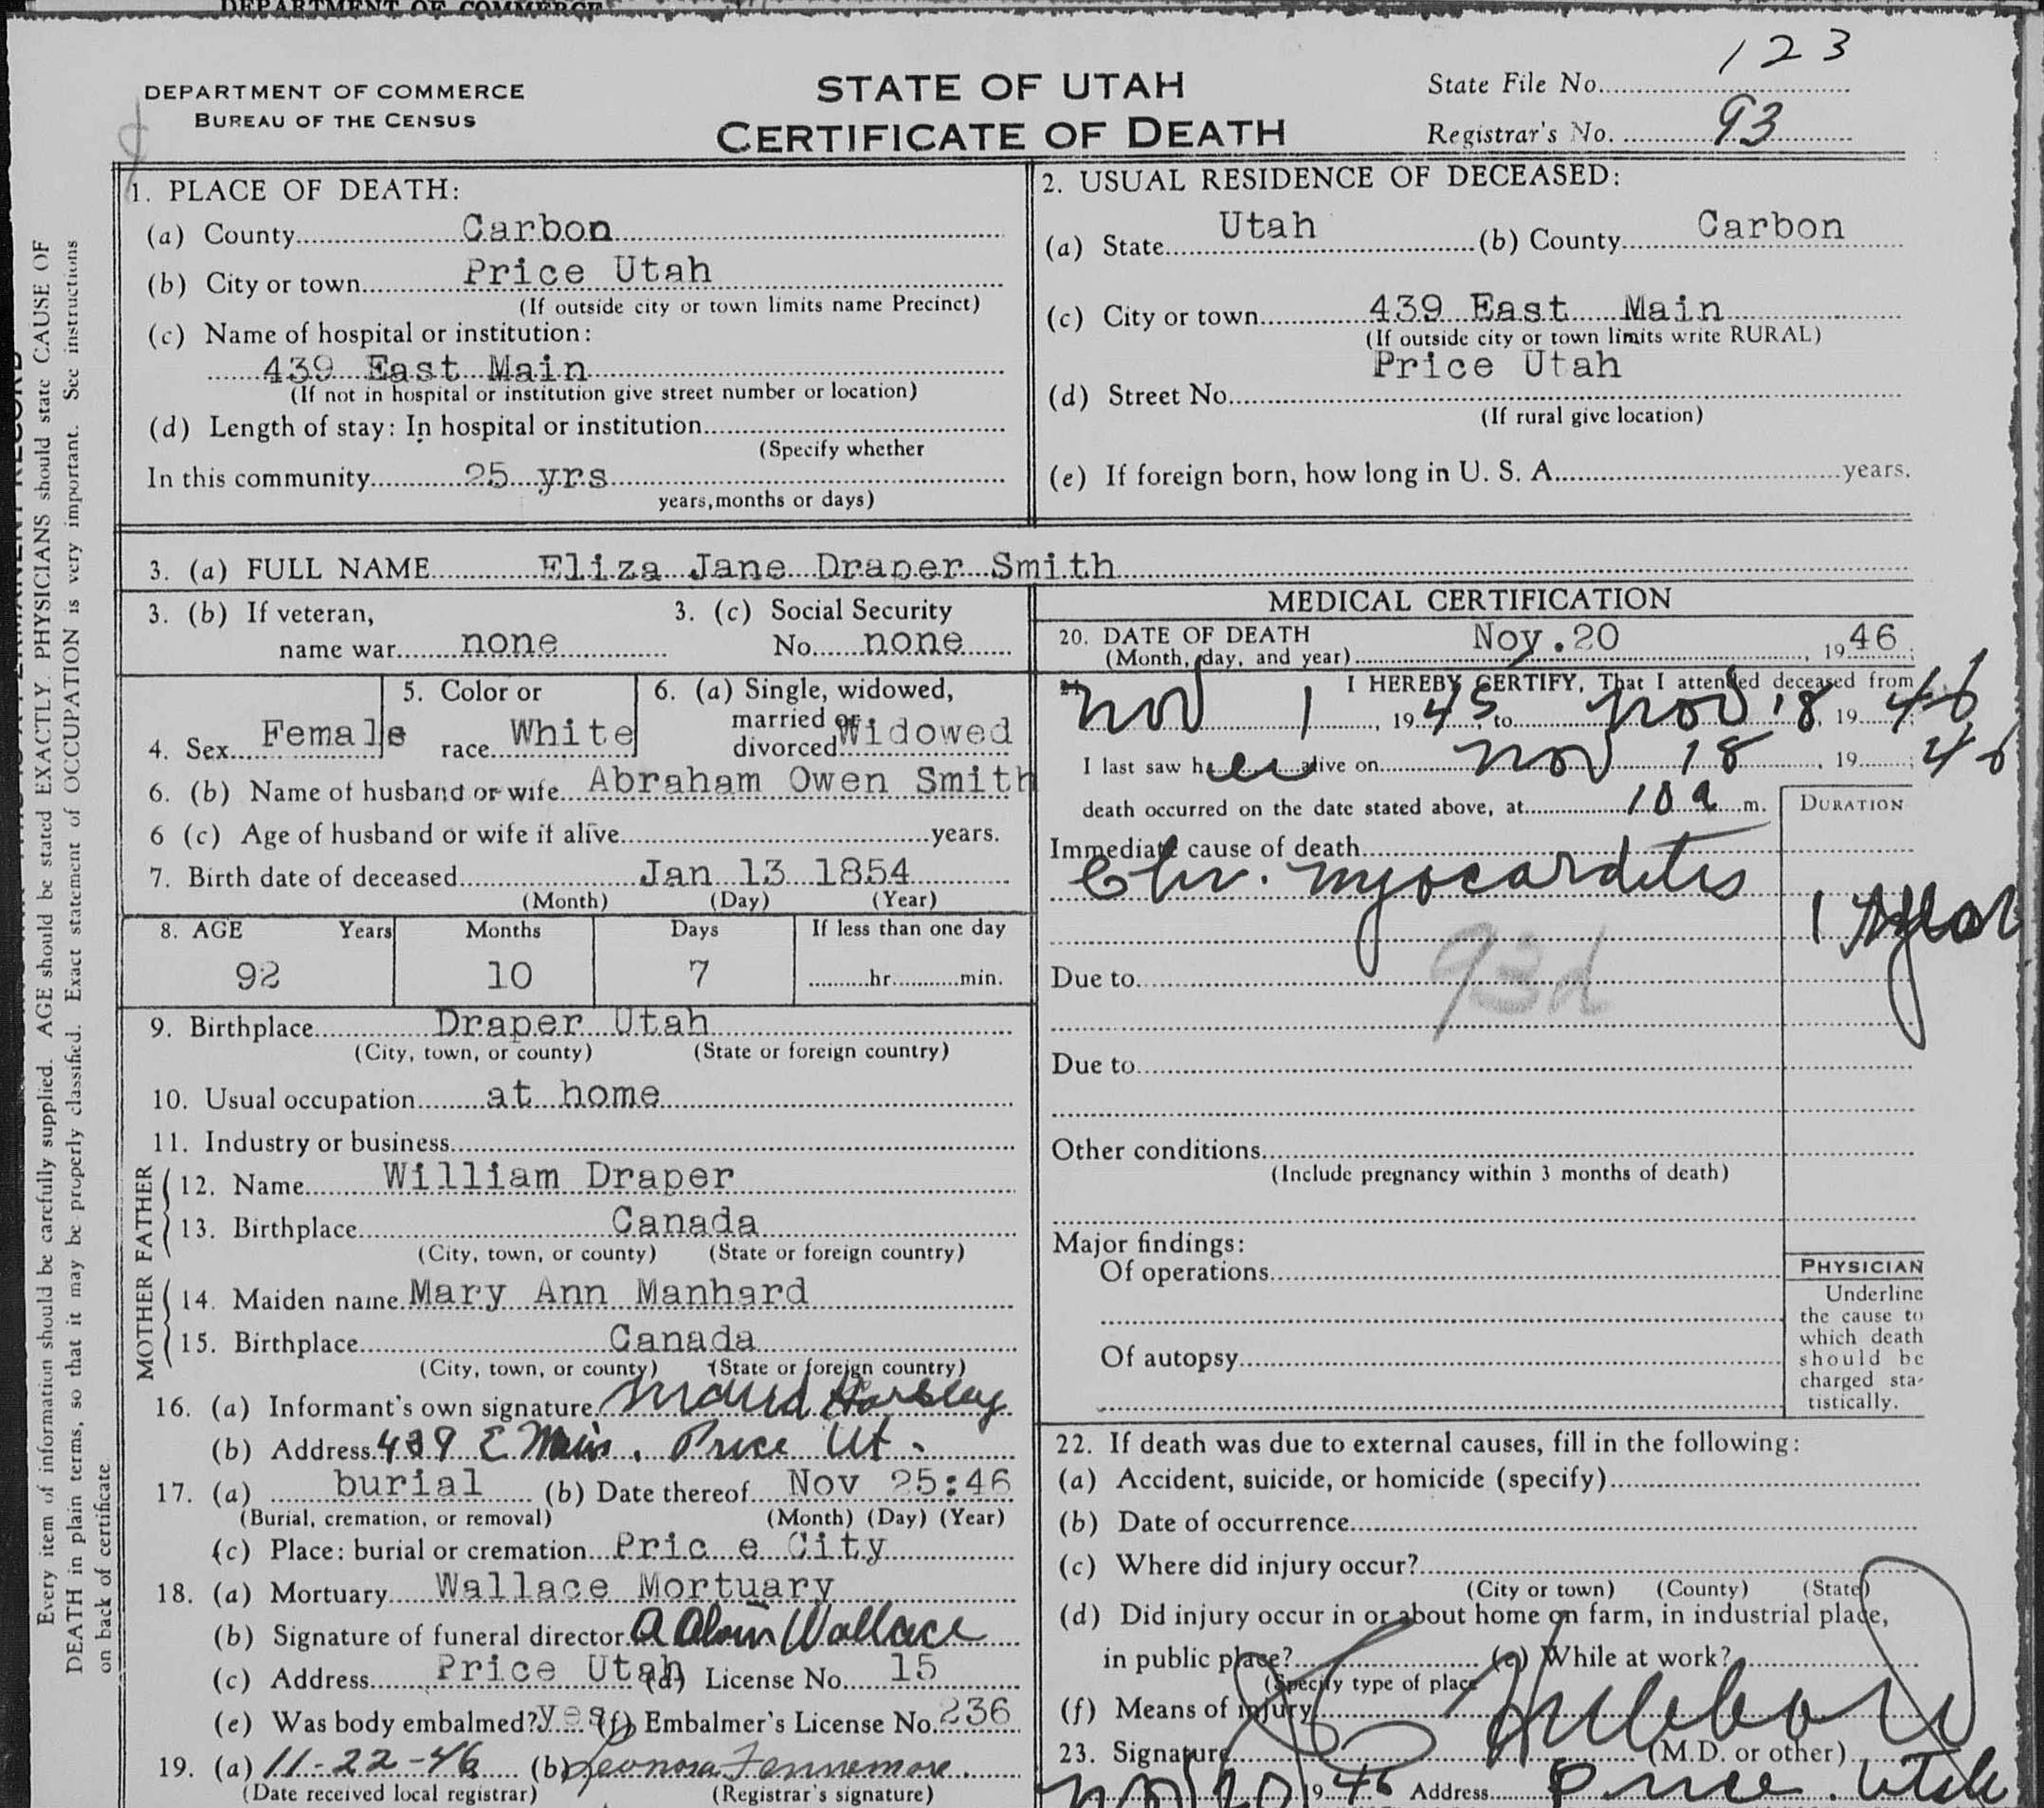 DEPARTMENT OF COMMERCE
123
DEPARTMENT OF COMMERCE
BUREAU OF THE CENSUS
STATE OF UTAH
CERTIFICATE OF DEATH
State File No.
Registrar's No. 93
Every item of information should be carefully supplied. AGE should be stated EXACTLY. PHYSICIANS should state CAUSE OF
DEATH in plain terms, so that it may be properly classified. Exact statement of OCCUPATION is very important. See instructions
on back of certificate.
1. PLACE OF DEATH:
(a) County Carbon
(b) City or town Price Utah
(If outside city or town limits name Precinct)
(c) Name of hospital or institution:
439 East Main
(If not in hospital or institution give street number or location)
(d) Length of stay: In hospital or institution
(Specify whether
In this community 25 yrs
years, months or days)
2. USUAL RESIDENCE OF DECEASED:
(a) State Utah (b) County Carbon
(c) City or town 439 East Main
(If outside city or town limits write RURAL)
Price Utah
(d) Street No.
(If rural give location)
(e) If foreign born, how long in U. S. A. years.
3. (a) FULL NAME Eliza Jane Draper Smith
3. (b) If veteran,
name war none
3. (c) Social Security
No. none
4. Sex Female
5. Color or
race White
6. (a) Single, widowed,
married or
divorced Widowed
6. (b) Name of husband or wife Abraham Owen Smith
6 (c) Age of husband or wife if alive years.
7. Birth date of deceased Jan 13 1854
(Month) (Day) (Year)
8. AGE Years Months Days If less than one day
92 10 7 hr. min.
9. Birthplace Draper Utah
(City, town, or county) (State or foreign country)
10. Usual occupation at home
11. Industry or business
FATHER
12. Name William Draper
13. Birthplace Canada
(City, town, or county) (State or foreign country)
MOTHER
14. Maiden name Mary Ann Manhard
15. Birthplace Canada
(City, town, or county) (State or foreign country)
16. (a) Informant's own signature Maud Horsley
(b) Address 439 E Main. Price Ut.
17. (a) burial (b) Date thereof Nov 25:46
(Burial, cremation, or removal) (Month) (Day) (Year)
(c) Place: burial or cremation Pric e City
18. (a) Mortuary Wallace Mortuary
(b) Signature of funeral director Wallace
(c) Address Price Utah (d) License No. 15
(e) Was body embalmed? yes (f) Embalmer's License No. 236
19. (a) 11-22-46 (b) Leonora Fennemore.
(Date received local registrar) (Registrar's signature)
MEDICAL CERTIFICATION
20. DATE OF DEATH
(Month, day, and year) Nov. 20, 1946
21. I HEREBY CERTIFY, That I attended deceased from
Nov 1, 1945, to Nov 18, 1946;
I last saw her alive on Nov 18, 19 46;
death occurred on the date stated above, at 10 a m.
DURATION
Immediate cause of death
Chr. myocarditis
1 year
93d
Due to
Due to
Other conditions
(Include pregnancy within 3 months of death)
Major findings:
Of operations
Of autopsy
PHYSICIAN
Underline
the cause to
which death
should be
charged sta-
tistically.
22. If death was due to external causes, fill in the following:
(a) Accident, suicide, or homicide (specify)
(b) Date of occurrence
(c) Where did injury occur?
(City or town) (County) (State)
(d) Did injury occur in or about home on farm, in industrial place,
in public place? (e) While at work?
(Specify type of place
(f) Means of injury
23. Signature Hubbard (M.D. or other)
Nov 20 1946 Address Price. Utah